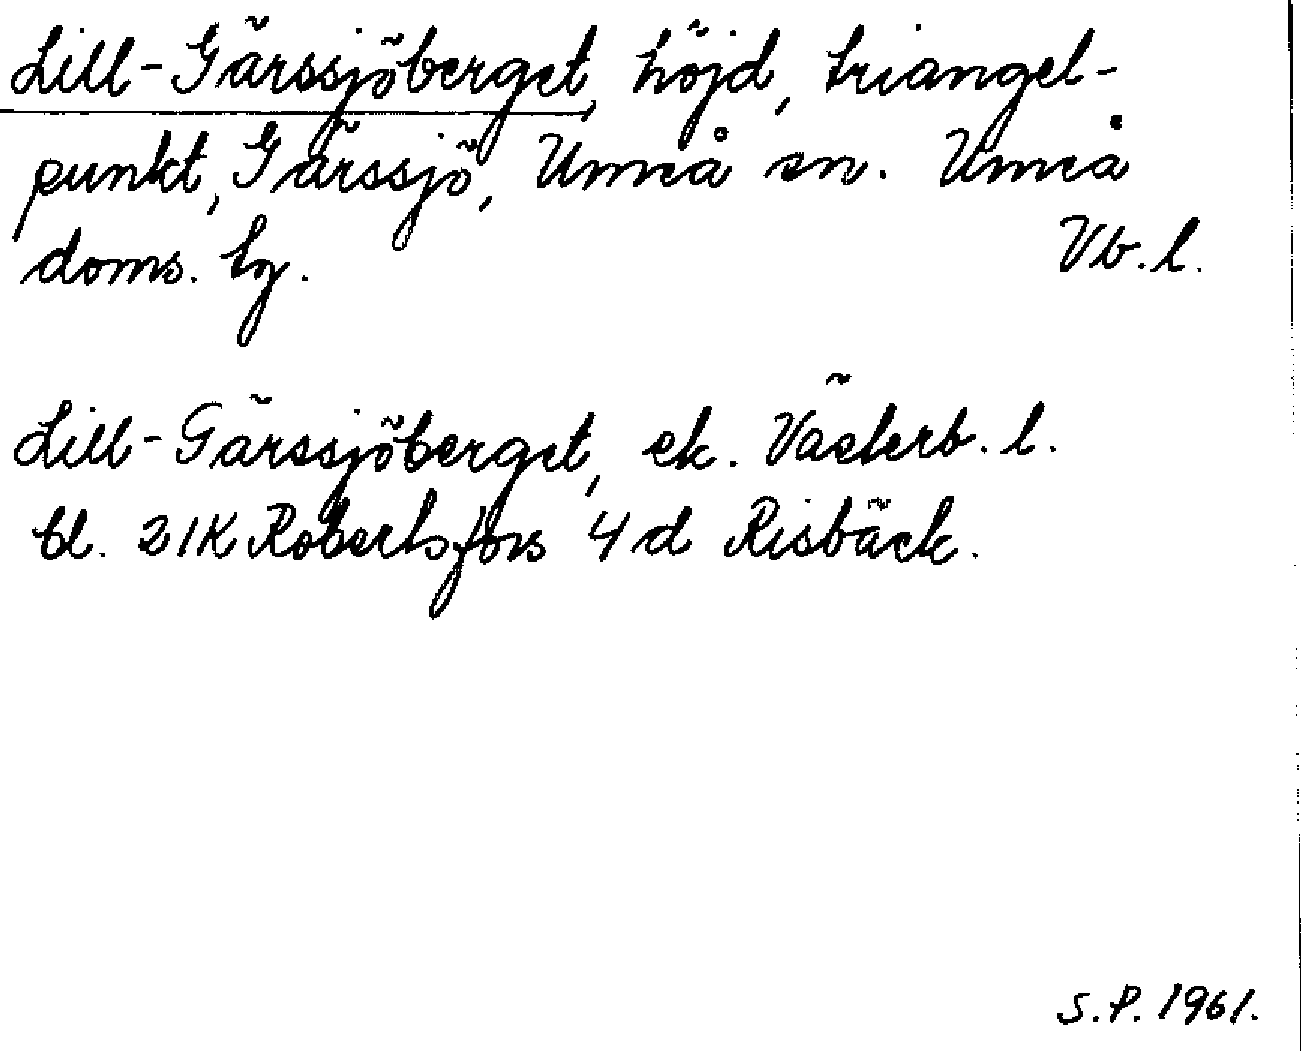 Lill-Gärssjöberget, höjd, triangel-
punkt, Gärssjö, Umeå sn. Umeå
doms. tg. Vb. l.
Lill-Gärssjöberget, ek. Västerb. l.
bl. 21K Robertsfors 4d Risbäck.
S.P. 1961.